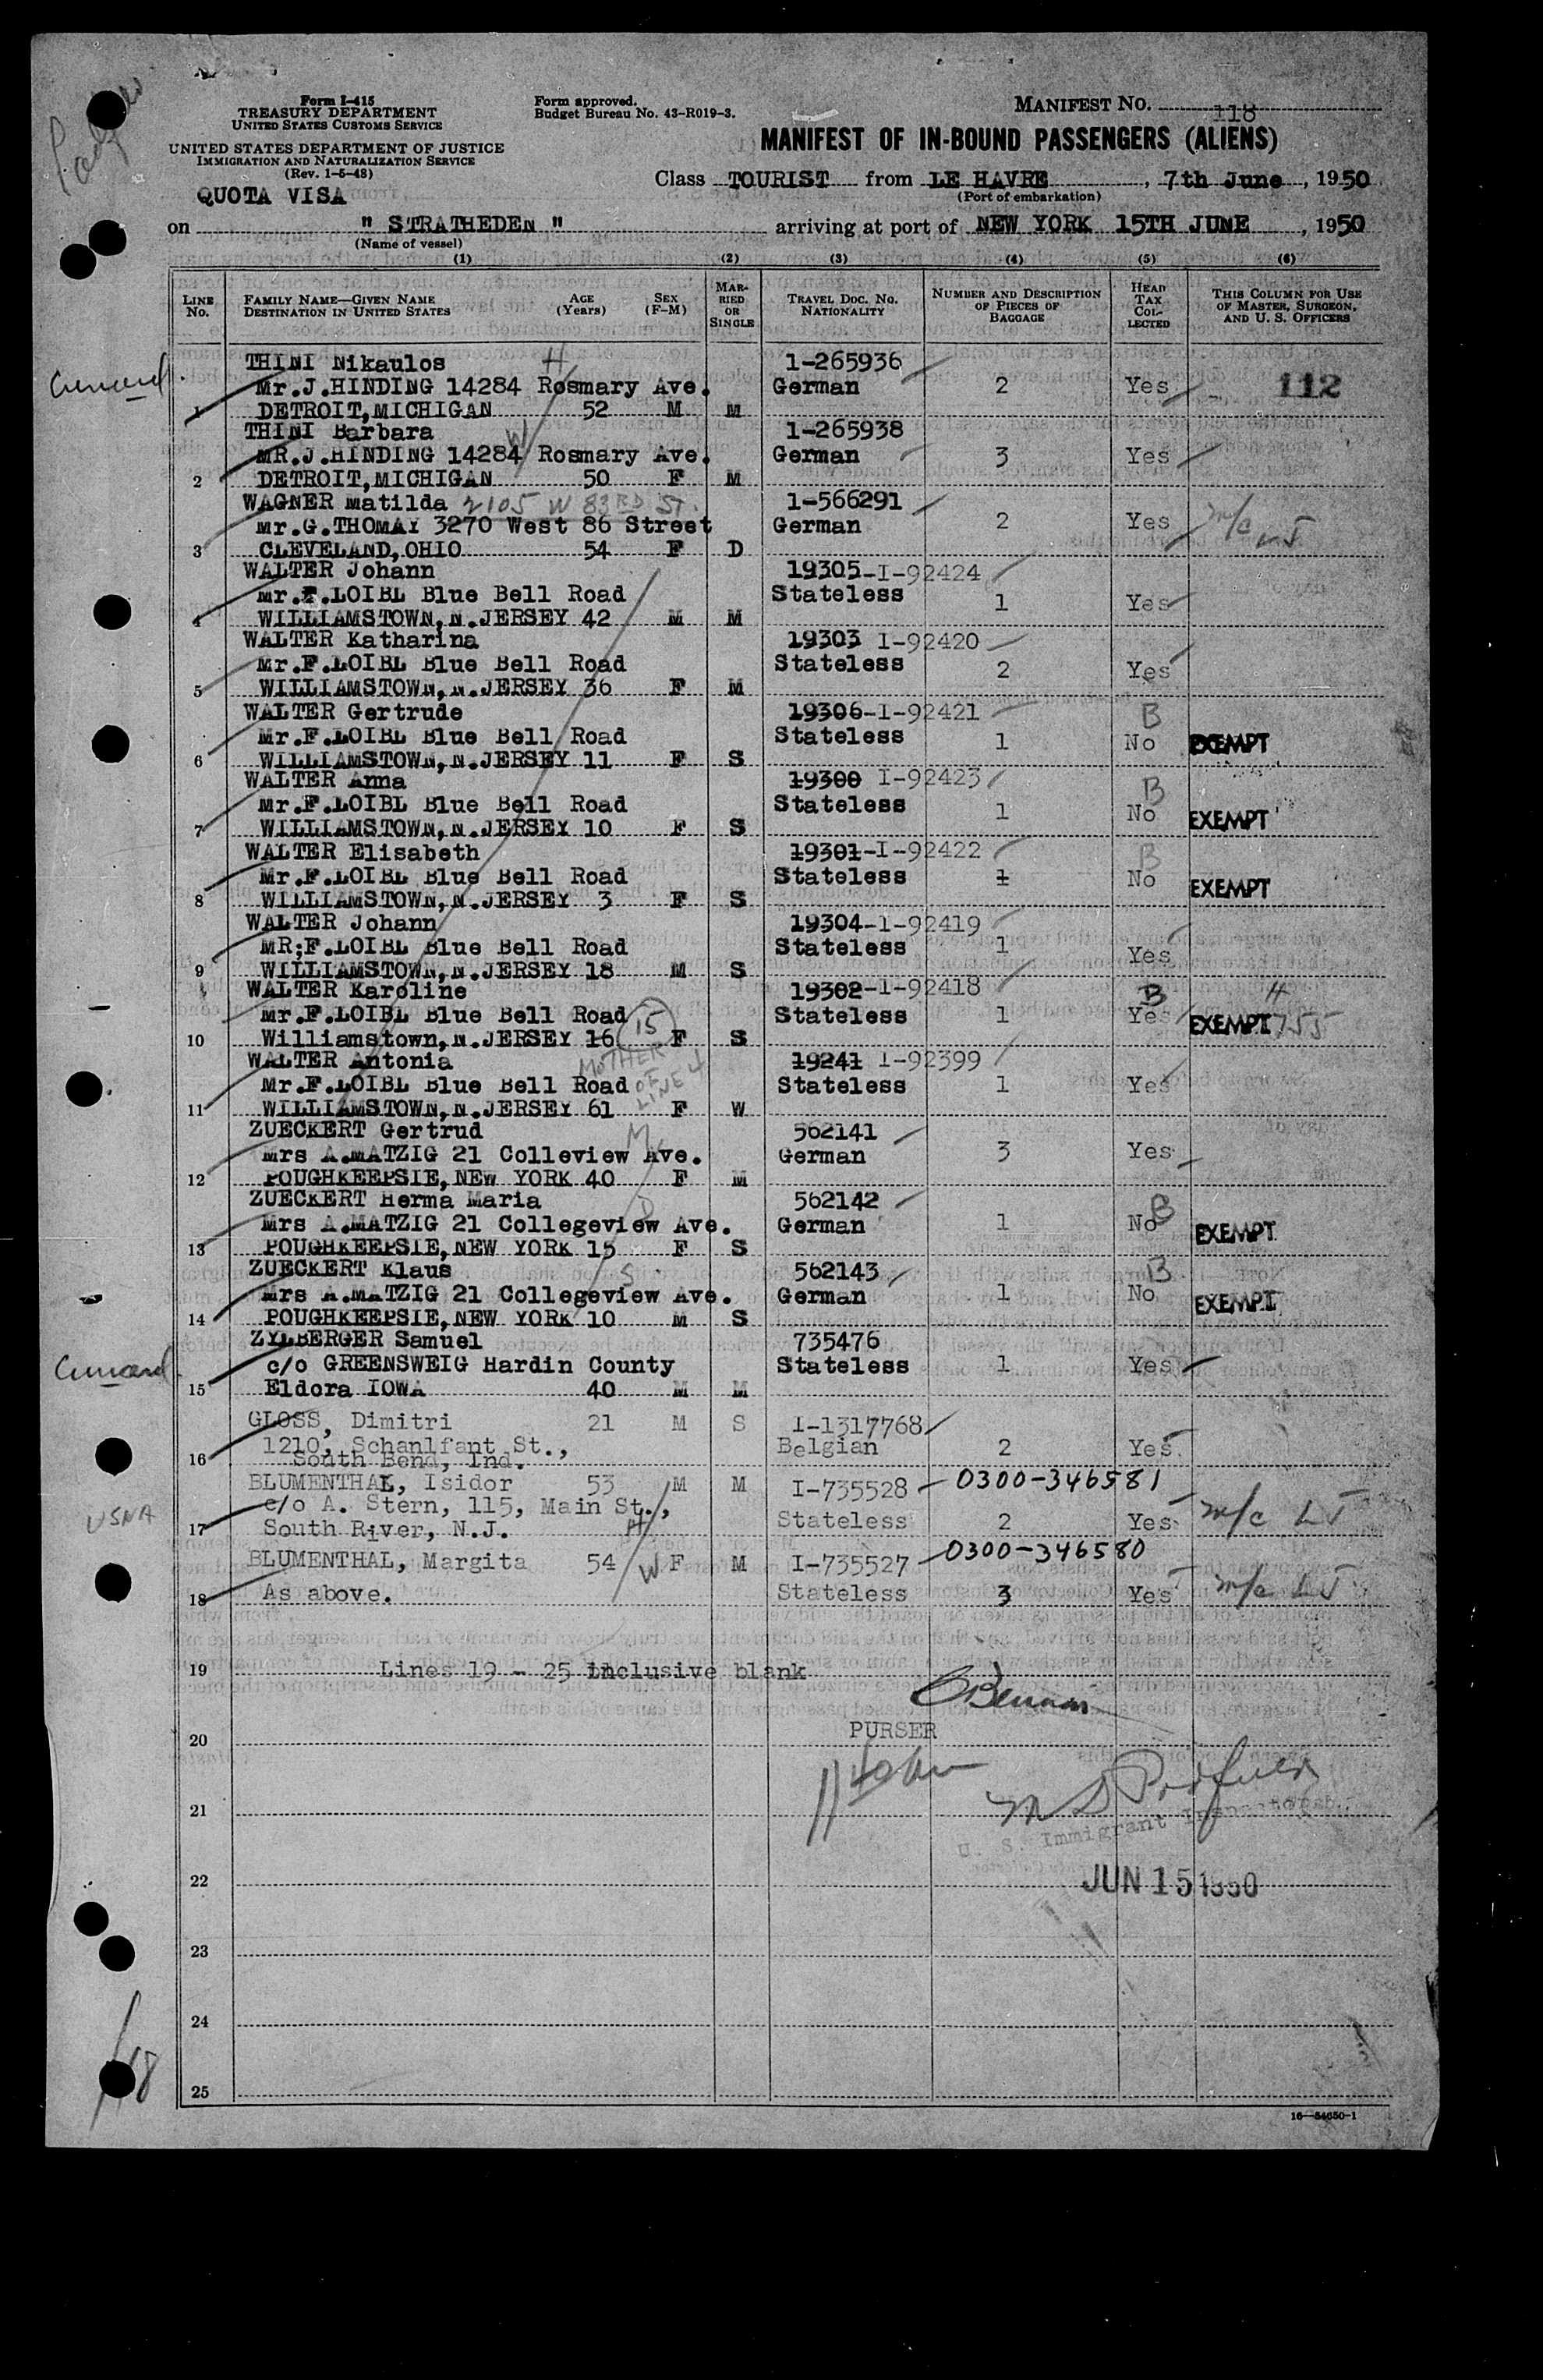 Form I-415
TREASURY DEPARTMENT
UNITED STATES CUSTOMS SERVICE
UNITED STATES DEPARTMENT OF JUSTICE
IMMIGRATION AND NATURALIZATION SERVICE
(Rev. 1-5-48)
QUOTA VISA
Form approved.
Budget Bureau No. 43-R019-3.
MANIFEST NO. 118
MANIFEST OF IN-BOUND PASSENGERS (ALIENS)
Class TOURIST from LE HAVRE, 7th June, 1950
(Port of embarkation)
on " STRATHEDEN " arriving at port of NEW YORK 15TH JUNE, 1950
(Name of vessel)
(1) (2) (3) (4) (5) (6)
LINE No.
FAMILY NAME—GIVEN NAME DESTINATION IN UNITED STATES
AGE (Years)
SEX (F-M)
MARRIED OR SINGLE
TRAVEL DOC. NO. NATIONALITY
NUMBER AND DESCRIPTION OF PIECES OF BAGGAGE
HEAD TAX COLLECTED
THIS COLUMN FOR USE OF MASTER, SURGEON, AND U. S. OFFICERS
Cunard
THINI Nikaulos H 1-265936
Mr.J.HINDING 14284 Rosmary Ave. German 2 Yes 112
1 DETROIT,MICHIGAN 52 M M
THINI Barbara W 1-265938
MR.J.HINDING 14284 Rosmary Ave. German 3 Yes
2 DETROIT,MICHIGAN 50 F M
WAGNER Matilda 2105 W 83RD ST. 1-566291
Mr.G.THOMAY 3270 West 86 Street German 2 Yes m/c LJ
3 CLEVELAND,OHIO 54 F D
WALTER Johann 19305-I-92424
Mr.F.LOIBL Blue Bell Road Stateless 1 Yes
4 WILLIAMSTOWN,N.JERSEY 42 M M
WALTER Katharina 19303 I-92420
Mr.F.LOIBL Blue Bell Road Stateless 2 Yes
5 WILLIAMSTOWN,N.JERSEY 36 F M
WALTER Gertrude 19306-I-92421 B
Mr.F.LOIBL Blue Bell Road Stateless 1 No EXEMPT
6 WILLIAMSTOWN,N.JERSEY 11 F S
WALTER Anna 19300 I-92423 B
Mr.F.LOIBL Blue Bell Road Stateless 1 No EXEMPT
7 WILLIAMSTOWN,N.JERSEY 10 F S
WALTER Elisabeth 19301-I-92422 B
Mr.F.LOIBL Blue Bell Road Stateless 1 No EXEMPT
8 WILLIAMSTOWN,N.JERSEY 3 F S
WALTER Johann 19304-I-92419
MR;F.LOIBL Blue Bell Road Stateless 1 Yes
9 WILLIAMSTOWN,N.JERSEY 18 M S
WALTER Karoline 19302-I-92418 B H
Mr.F.LOIBL Blue Bell Road 15 Stateless 1 Yes EXEMPT 755
10 Williamstown,N.JERSEY 16 F S
WALTER Antonia MOTHER OF LINE 4 19241 I-92399
Mr.F.LOIBL Blue Bell Road Stateless 1 Yes
11 WILLIAMSTOWN,N.JERSEY 61 F W
ZUECKERT Gertrud M 562141
Mrs A.MATZIG 21 Colleview Ave. German 3 Yes
12 POUGHKEEPSIE,NEW YORK 40 F M
ZUECKERT Herma Maria D 562142 B
Mrs A.MATZIG 21 Collegeview Ave. German 1 No EXEMPT
13 POUGHKEEPSIE,NEW YORK 15 F S
ZUECKERT Klaus S 562143 B
Mrs A.MATZIG 21 Collegeview Ave. German 1 No EXEMPT
14 POUGHKEEPSIE,NEW YORK 10 M S
Cunard
ZYLBERGER Samuel 735476
c/o GREENSWEIG Hardin County Stateless 1 Yes
15 Eldora IOWA 40 M M
GLOSS, Dimitri 21 M S I-1317768
1210, Schanlfant St., Belgian 2 Yes
16 South Bend, Ind.
BLUMENTHAL, Isidor 53 M M I-735528 0300-346581
USNA c/o A. Stern, 115, Main St., Stateless 2 Yes m/c LJ
17 South River, N.J. H
BLUMENTHAL, Margita 54 W F M I-735527 0300-346580
18 As above. Stateless 3 Yes m/c LJ
19 Lines 19 - 25 inclusive blank
20 PURSER
21
U. S. Immigrant Inspector
22 JUN 15 1950
23
24
118
25
16—54650-1